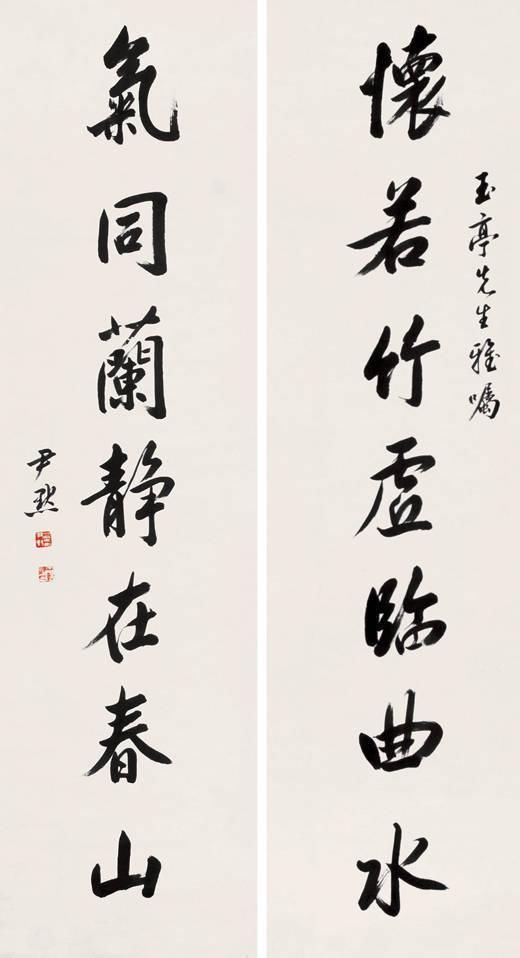 玉亭先生雅嘱
懷若竹虛臨曲水
氣同蘭靜在春山
尹默